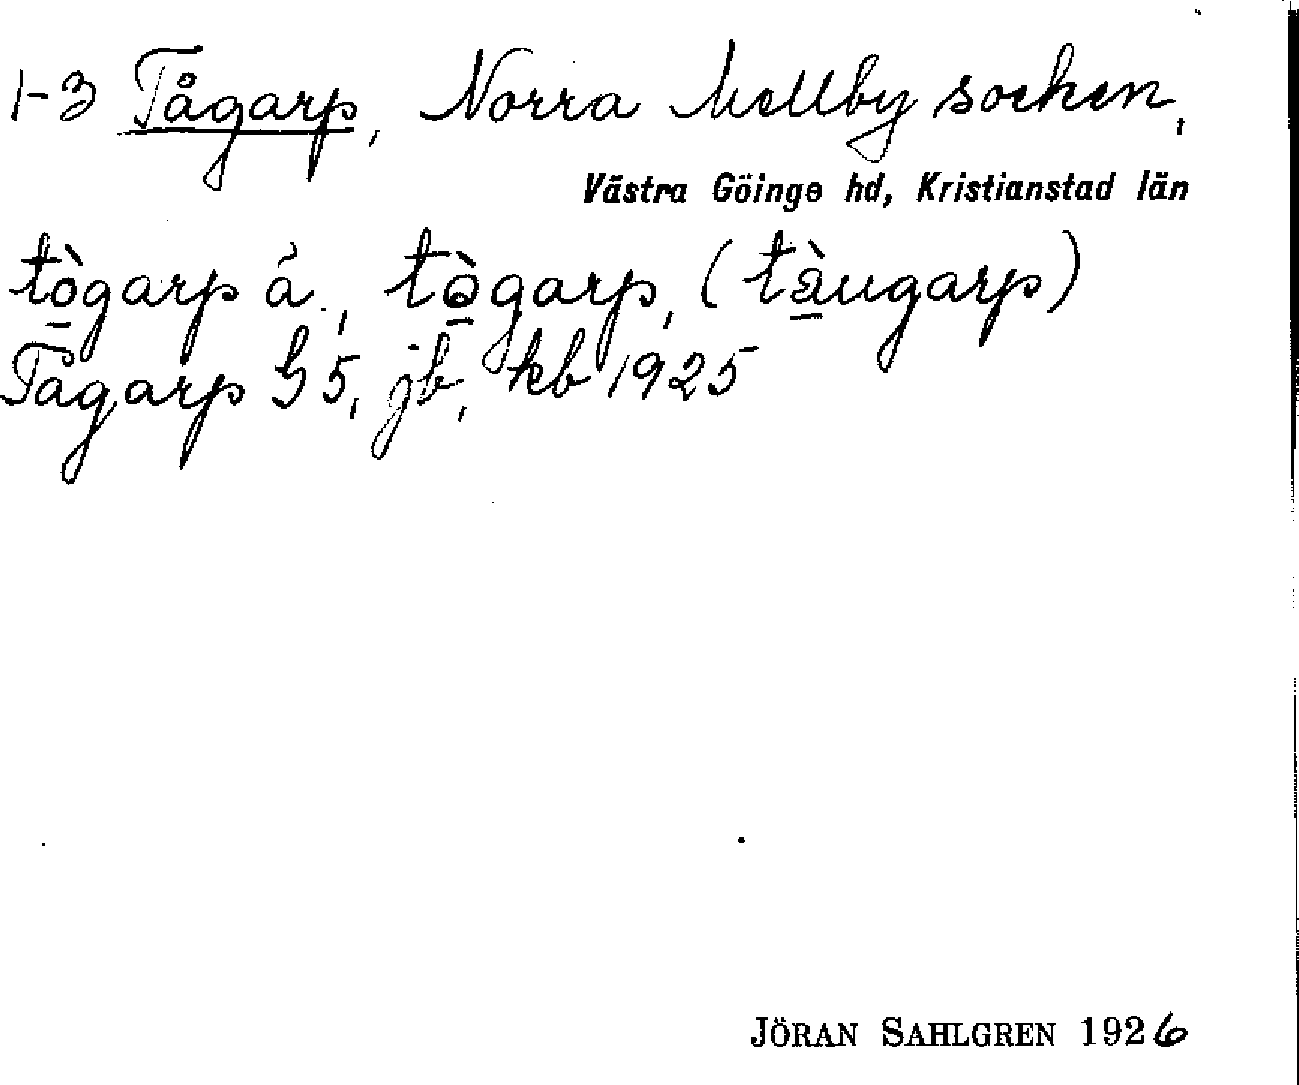 1-3 Tågarp, Norra Mellby socken,
Västra Göinge hd, Kristianstad län
tò̱garp å., tò̱garp, (tà̱ugarp)
Tågarp G 5, jb, kb 1925
JÖRAN SAHLGREN 1926